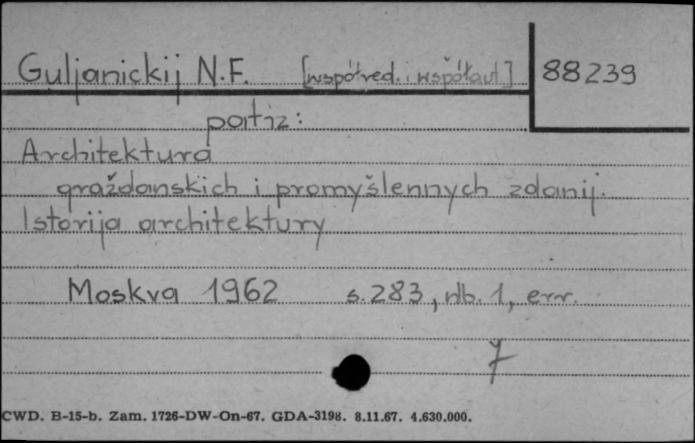 Guljanickij N.F. [współred. i współaut.] 88239
patrz:
Architektura
graždanskich i promyšlennych zdanij.
Istorija architektury
Moskva 1962 s. 283, nlb. 1, err.
7
CWD. B-15-b. Zam. 1726-DW-On-67. GDA-3198. 8.11.67. 4.630.000.